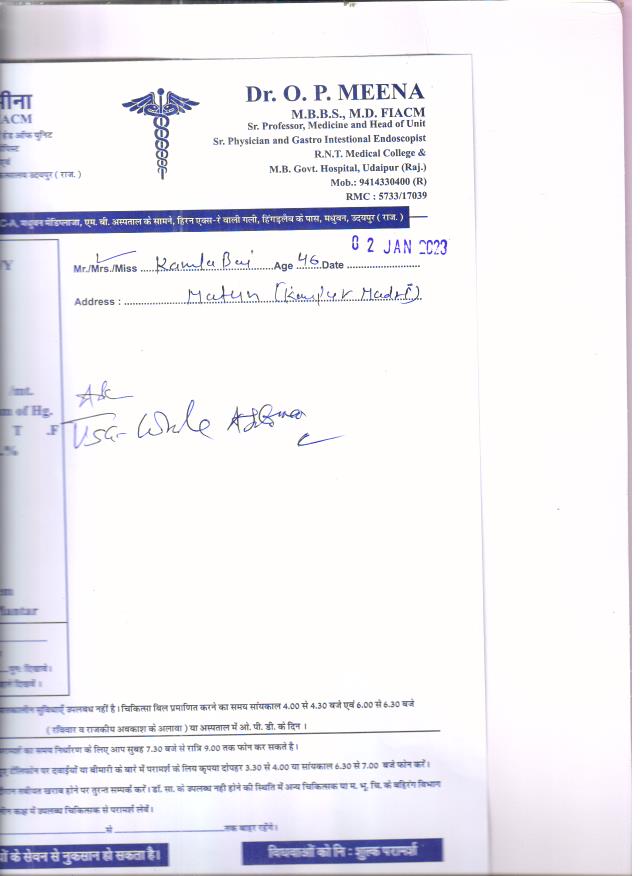 मीना
Dr. O. P. MEENA
ACM
M.B.B.S., M.D. FIACM
हेड ऑफ यूनिट
Sr. Professor, Medicine and Head of Unit
Sr. Physician and Gastro Intestional Endoscopist
एवं
R.N.T. Medical College &
उदयपुर ( राज. )
M.B. Govt. Hospital, Udaipur (Raj.)
Mob.: 9414330400 (R)
RMC : 5733/17039
C-A, मधुबन मेडिप्लाजा, एम. बी. अस्पताल के सामने, हिरन एक्स-रे वाली गली, हिंगड़लैब के पास, मधुवन, उदयपुर ( राज. )
02 JAN 2023
Y
Mr./Mrs./Miss Kamla Bai Age 46 Date
Address : Matun (Kanpur Madri)
/mt.
Adv
m of Hg.
T .F
USG- Whole Abdomen
.%
m
lantar
पुनः दिखावे।
दिखावें ।
सुविधाएँ उपलबध नहीं है। चिकित्सा बिल प्रमाणित करने का समय सांयकाल 4.00 से 4.30 बजे एवं 6.00 से 6.30 बजे
( रविवार व राजकीय अवकाश के अलावा ) या अस्पताल में ओ. पी. डी. के दिन ।
का समय निर्धारण के लिए आप सुबह 7.30 बजे से रात्रि 9.00 तक फोन कर सकते है।
टेलिफोन पर दवाईयों या बीमारी के बारे में परामर्श के लिय कृपया दोपहर 3.30 से 4.00 या सांयकाल 6.30 से 7.00 बजे फोन करें।
तबीयत खराब होने पर तुरन्त सम्पर्क करें। डॉ. सा. के उपलब्ध नही होनी की स्थिति में अन्य चिकित्सक या म. भू. चि. के बहिरंग विभाग
कक्ष में उपलब्ध चिकित्सक से परामर्श लेवें।
से तक बाहर रहेंगे।
के सेवन से नुकसान हो सकता है।
विधवाओं को नि : शुल्क परामर्श